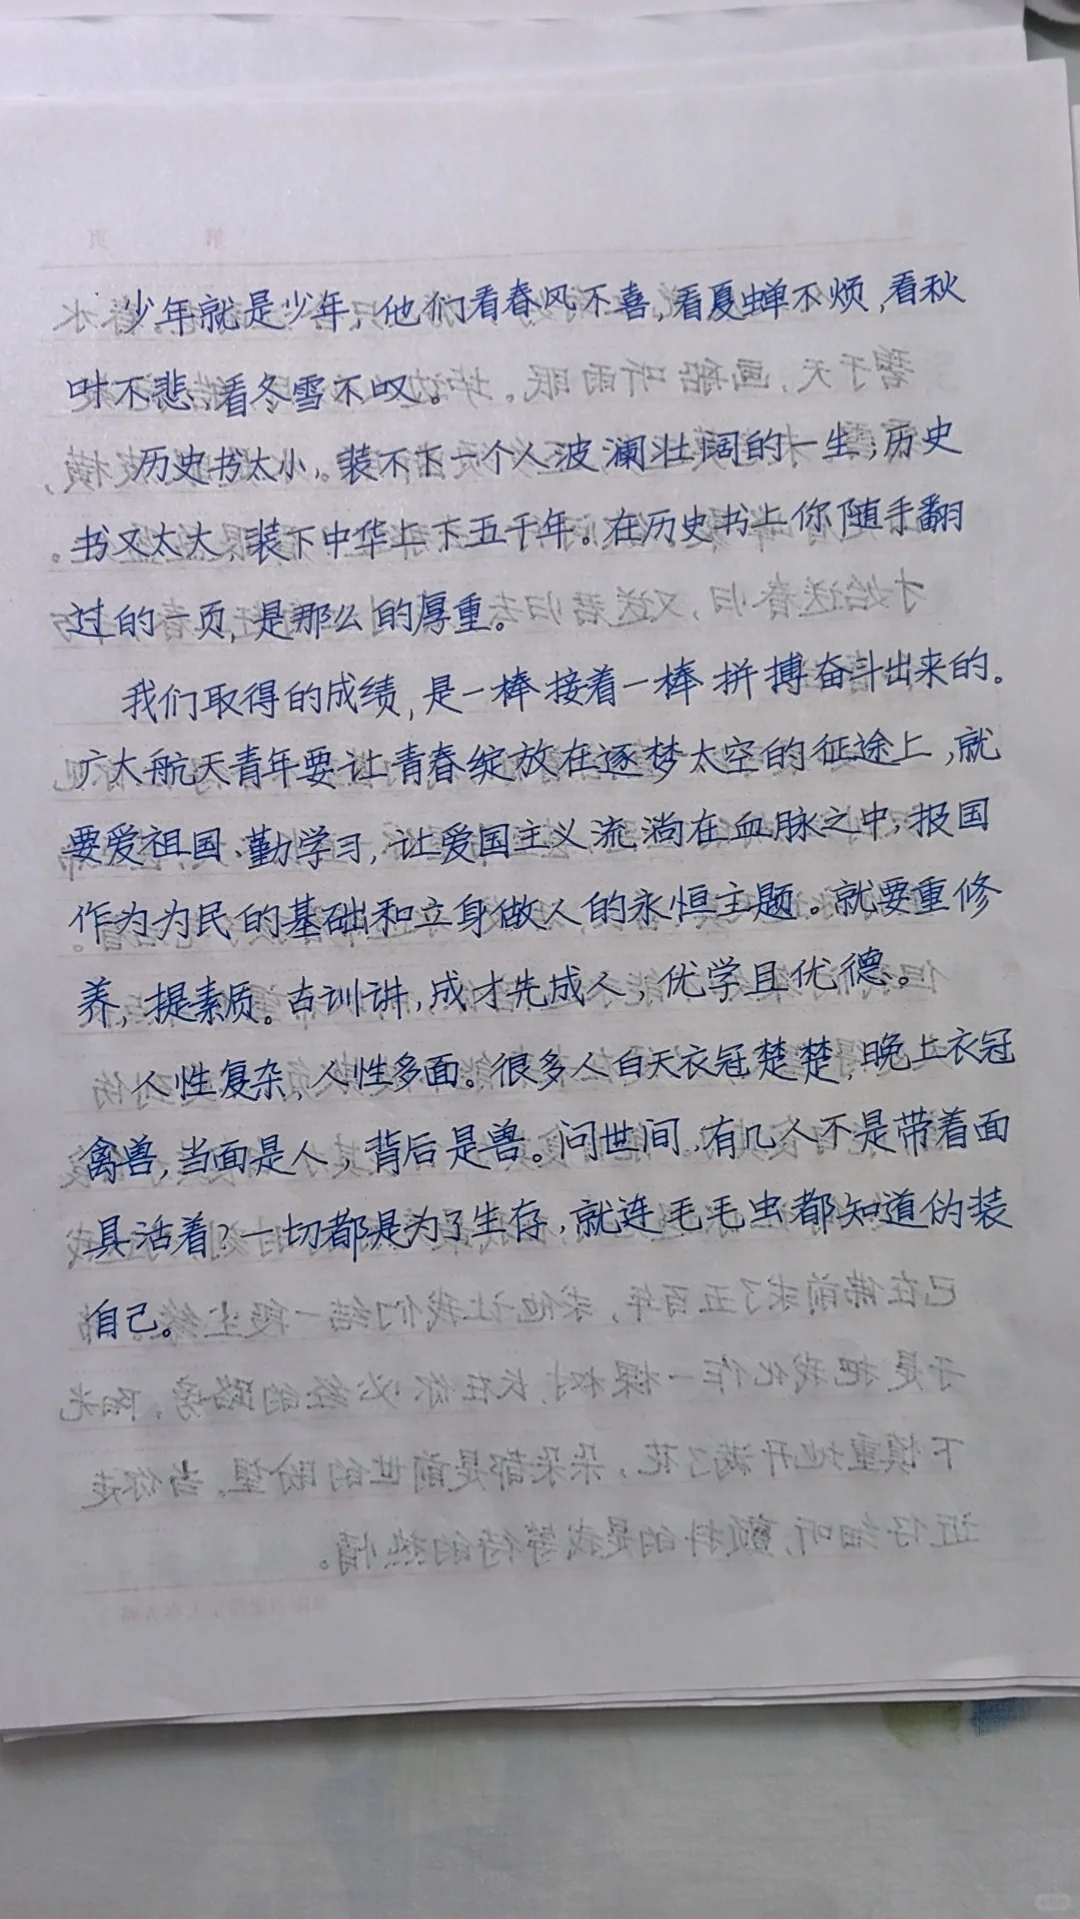 少年就是少年，他们看春风不喜，看夏蝉不烦，看秋
叶不悲，看冬雪不叹。
历史书太小，装不下一个人波澜壮阔的一生；历史
书又太大，装下中华上下五千年。在历史书上你随手翻
过的一页，是那么的厚重。
我们取得的成绩，是一棒接着一棒拼搏奋斗出来的。
广大航天青年要让青春绽放在逐梦太空的征途上，就
要爱祖国、勤学习，让爱国主义流淌在血脉之中，报国
作为为民的基础和立身做人的永恒主题。就要重修
养，提素质。古训讲，成才先成人，优学且优德。
人性复杂，人性多面。很多人白天衣冠楚楚，晚上衣冠
禽兽，当面是人，背后是兽。问世间，有几人不是带着面
具活着？一切都是为了生存，就连毛毛虫都知道伪装
自己。